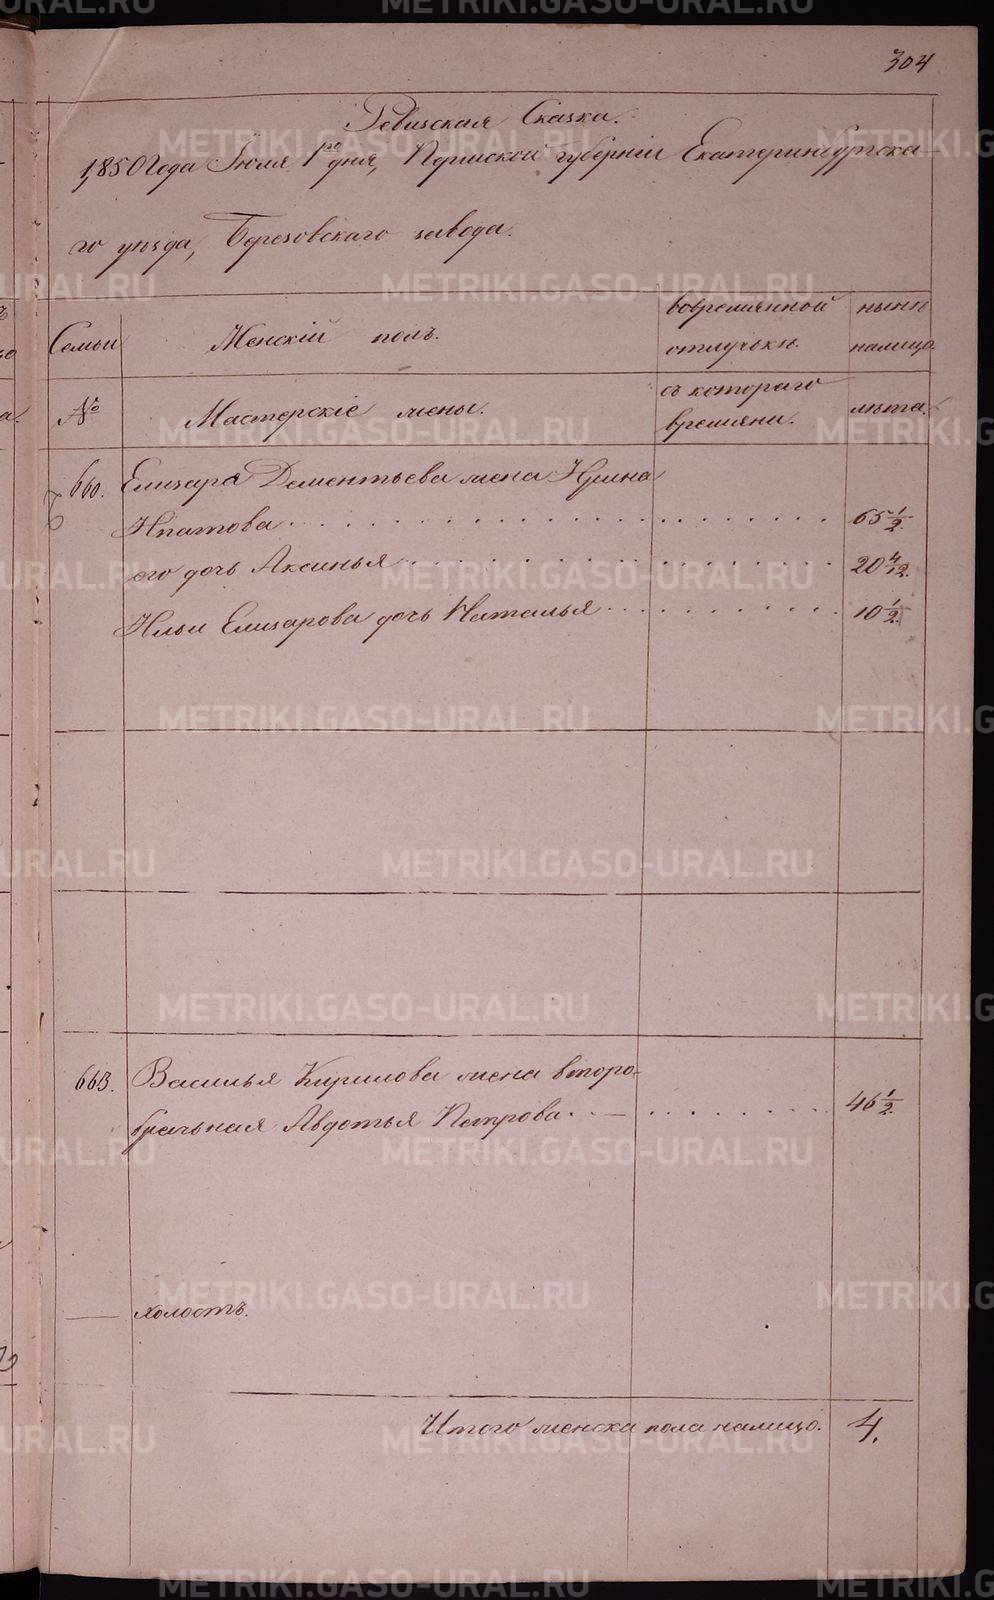 304
Ревизская Сказка.
1850 Года Іюля 1го дня, Пермской губерніи Екатеринбургска-
го уезда, Березовскаго завода.
Семьи Женскій полъ. вовремянной отлучьки. ныне налицо.
№ Мастерскіе жены. съ котораго времяни. лета.
660. Елизара Дементьева жена Ирина
Ипатова 65 1/2.
его дочь Аксинья 20 4/12.
Ильи Елизарова дочь Наталья 10 1/2.
663. Василья Кирилова жена второ-
брачьная Авдотья Петрова. 46 1/2.
холостъ.
Итого женска пола налицо. 4.
METRIKI.GASO-URAL.RU